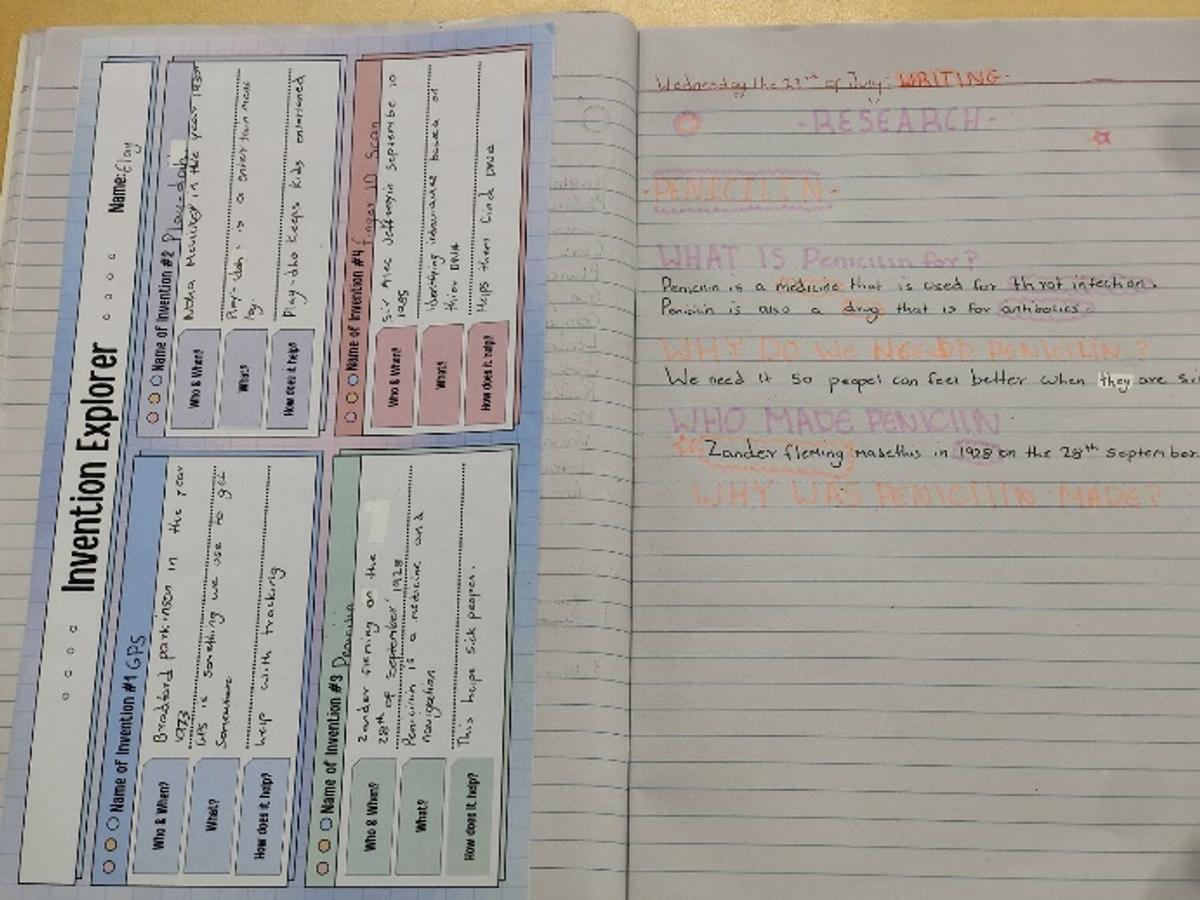 Invention Explorer
Name: Elay
Name of Invention #1 GPS
Who & When?
Bradford parkinson in the year
1973
What?
GPS is something we use to get
Somewhere
How does it help?
help with tracking
Name of Invention #2 Play-doh
Who & When?
Noha McVicker in the year 1930
What?
Play-doh is a entertainment
toy.
How does it help?
Play-dho keeps kids entertained
Name of Invention #3
Who & When?
Zander fleming on the
28th of September 1928
What?
Penicilin is a medicine and
navigation
How does it help?
This helps sick peopel.
Name of Invention #4 finger ID Scan
Who & When?
Sir Alec Jefferys in septembe 10
1985
What?
identifying based on
thier DNA
How does it help?
Helps them find DNA
Wednesday the 23rd of July: WRITING-
-RESEARCH-
-PENICILIN-
WHAT IS Penicilin for?
Penicilin is a medicine that is used for throt infection.
Penicilin is also a drug that is for antibolics.
WHY DO WE NEED PENICILIN?
We need it so peopel can feel better when they are
WHO MADE PENICILIN
Zander fleming made this in 1928 on the 28th september.
WHY WAS PENICILIN MADE?